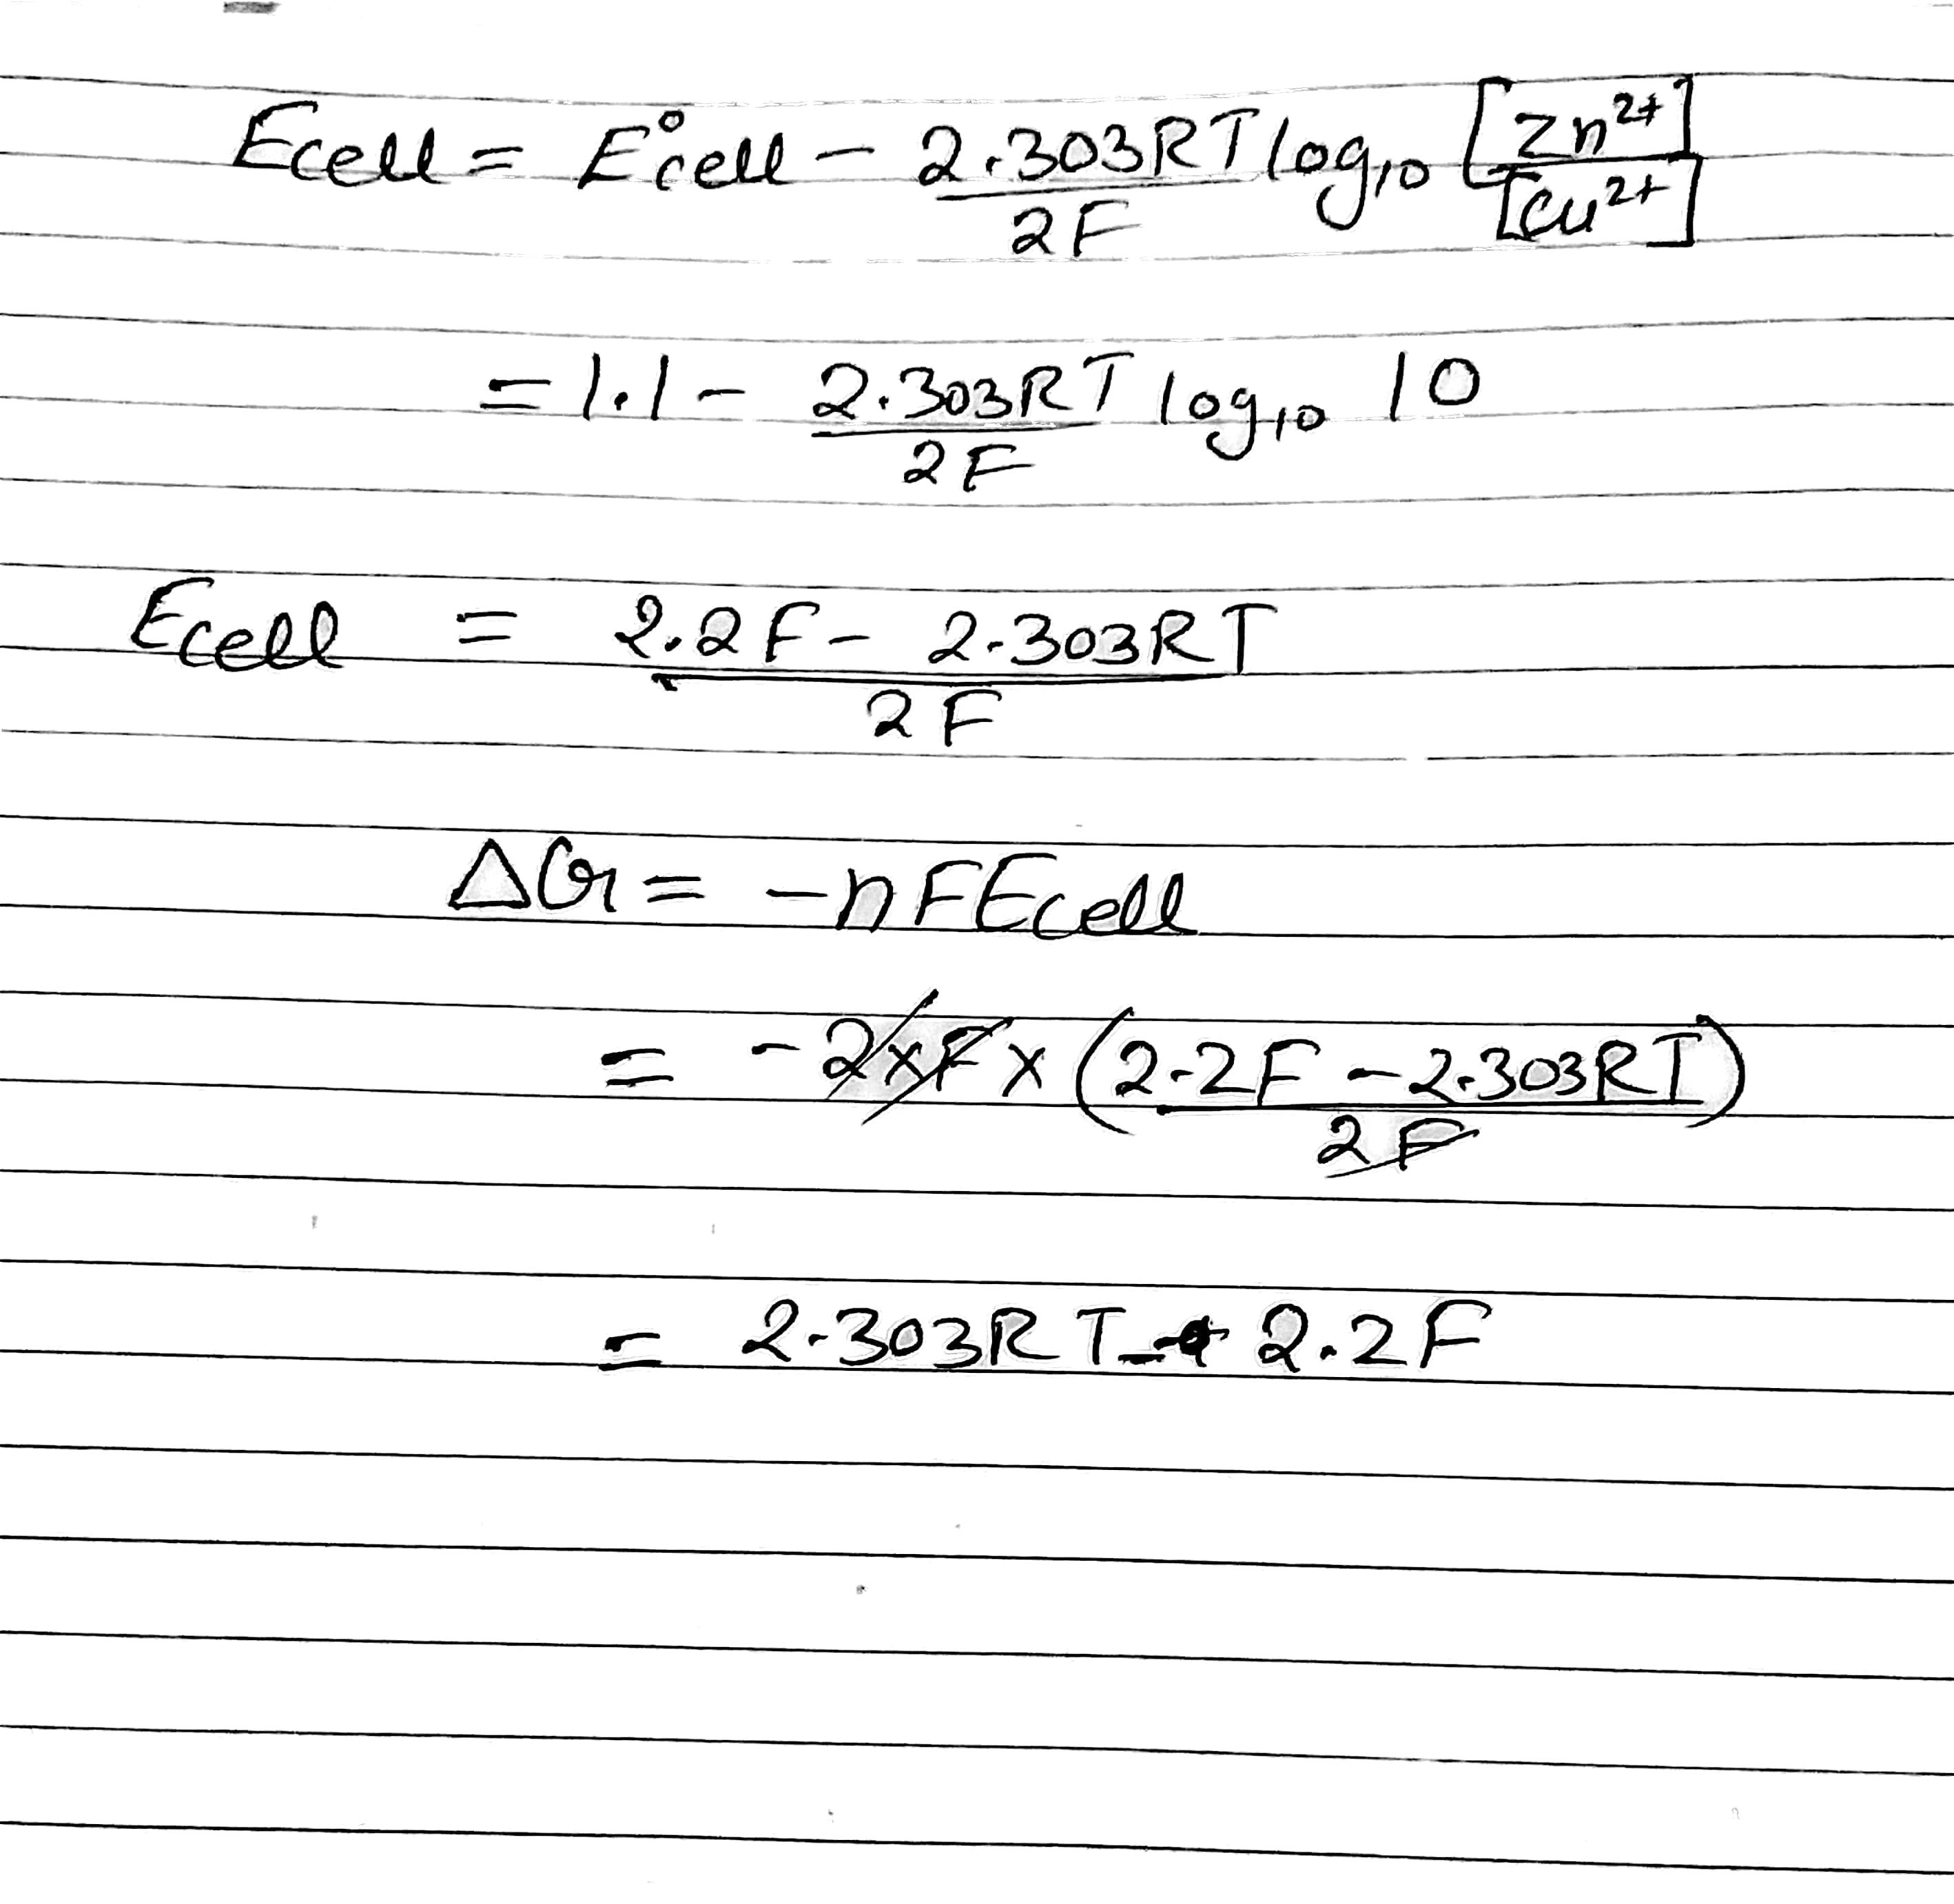 Ecell = E°cell - 2.303RT/2F log10 [Zn2+]/[Cu2+]
= 1.1 - 2.303RT/2F log10 10
Ecell = 2.2F - 2.303RT/2F
ΔG = -nFEcell
= -2×F×(2.2F - 2.303RT/2F)
= 2.303RT - 2.2F